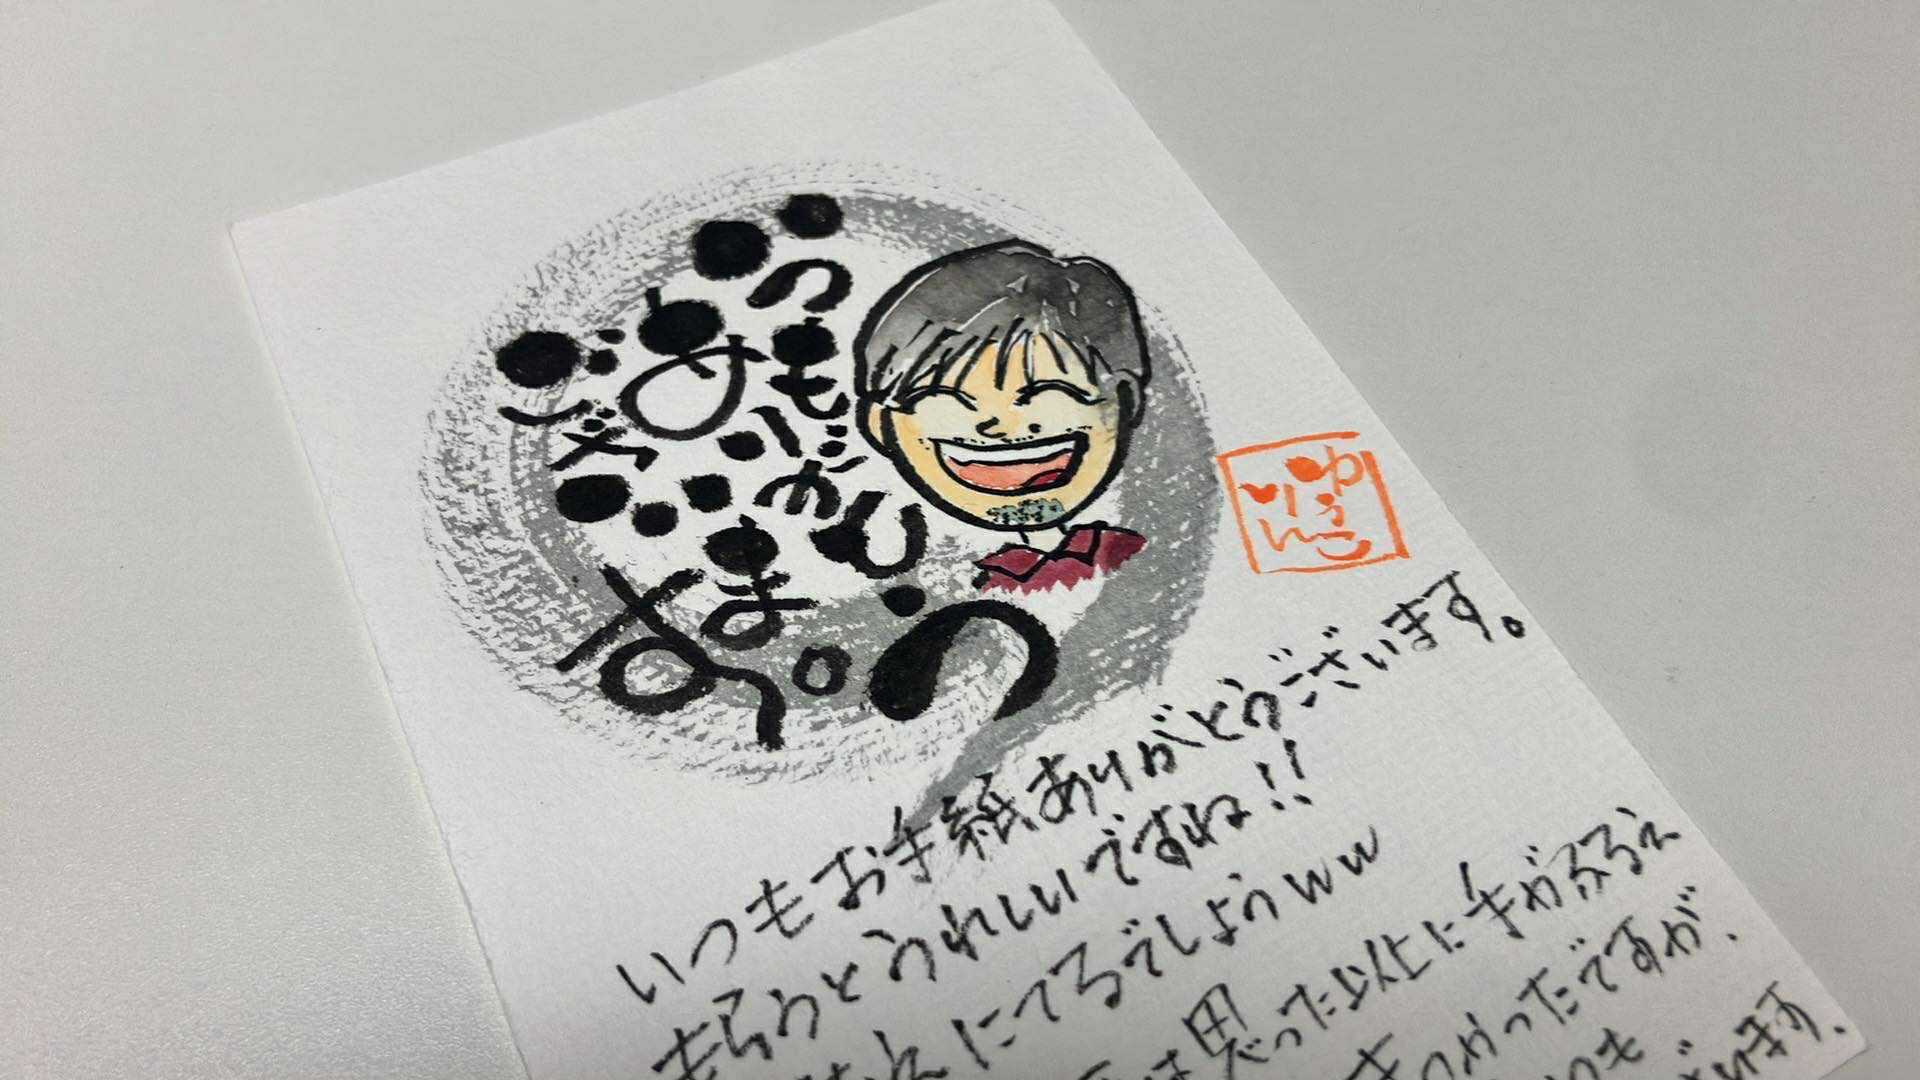 いつも
ありがとう
ございます。
ゆうこ
りん
いつもお手紙ありがとうございます。
もらうとうれしいですね!!
にてるでしょうww
は思った以上に手がふるえ
きつかったですが、
います。